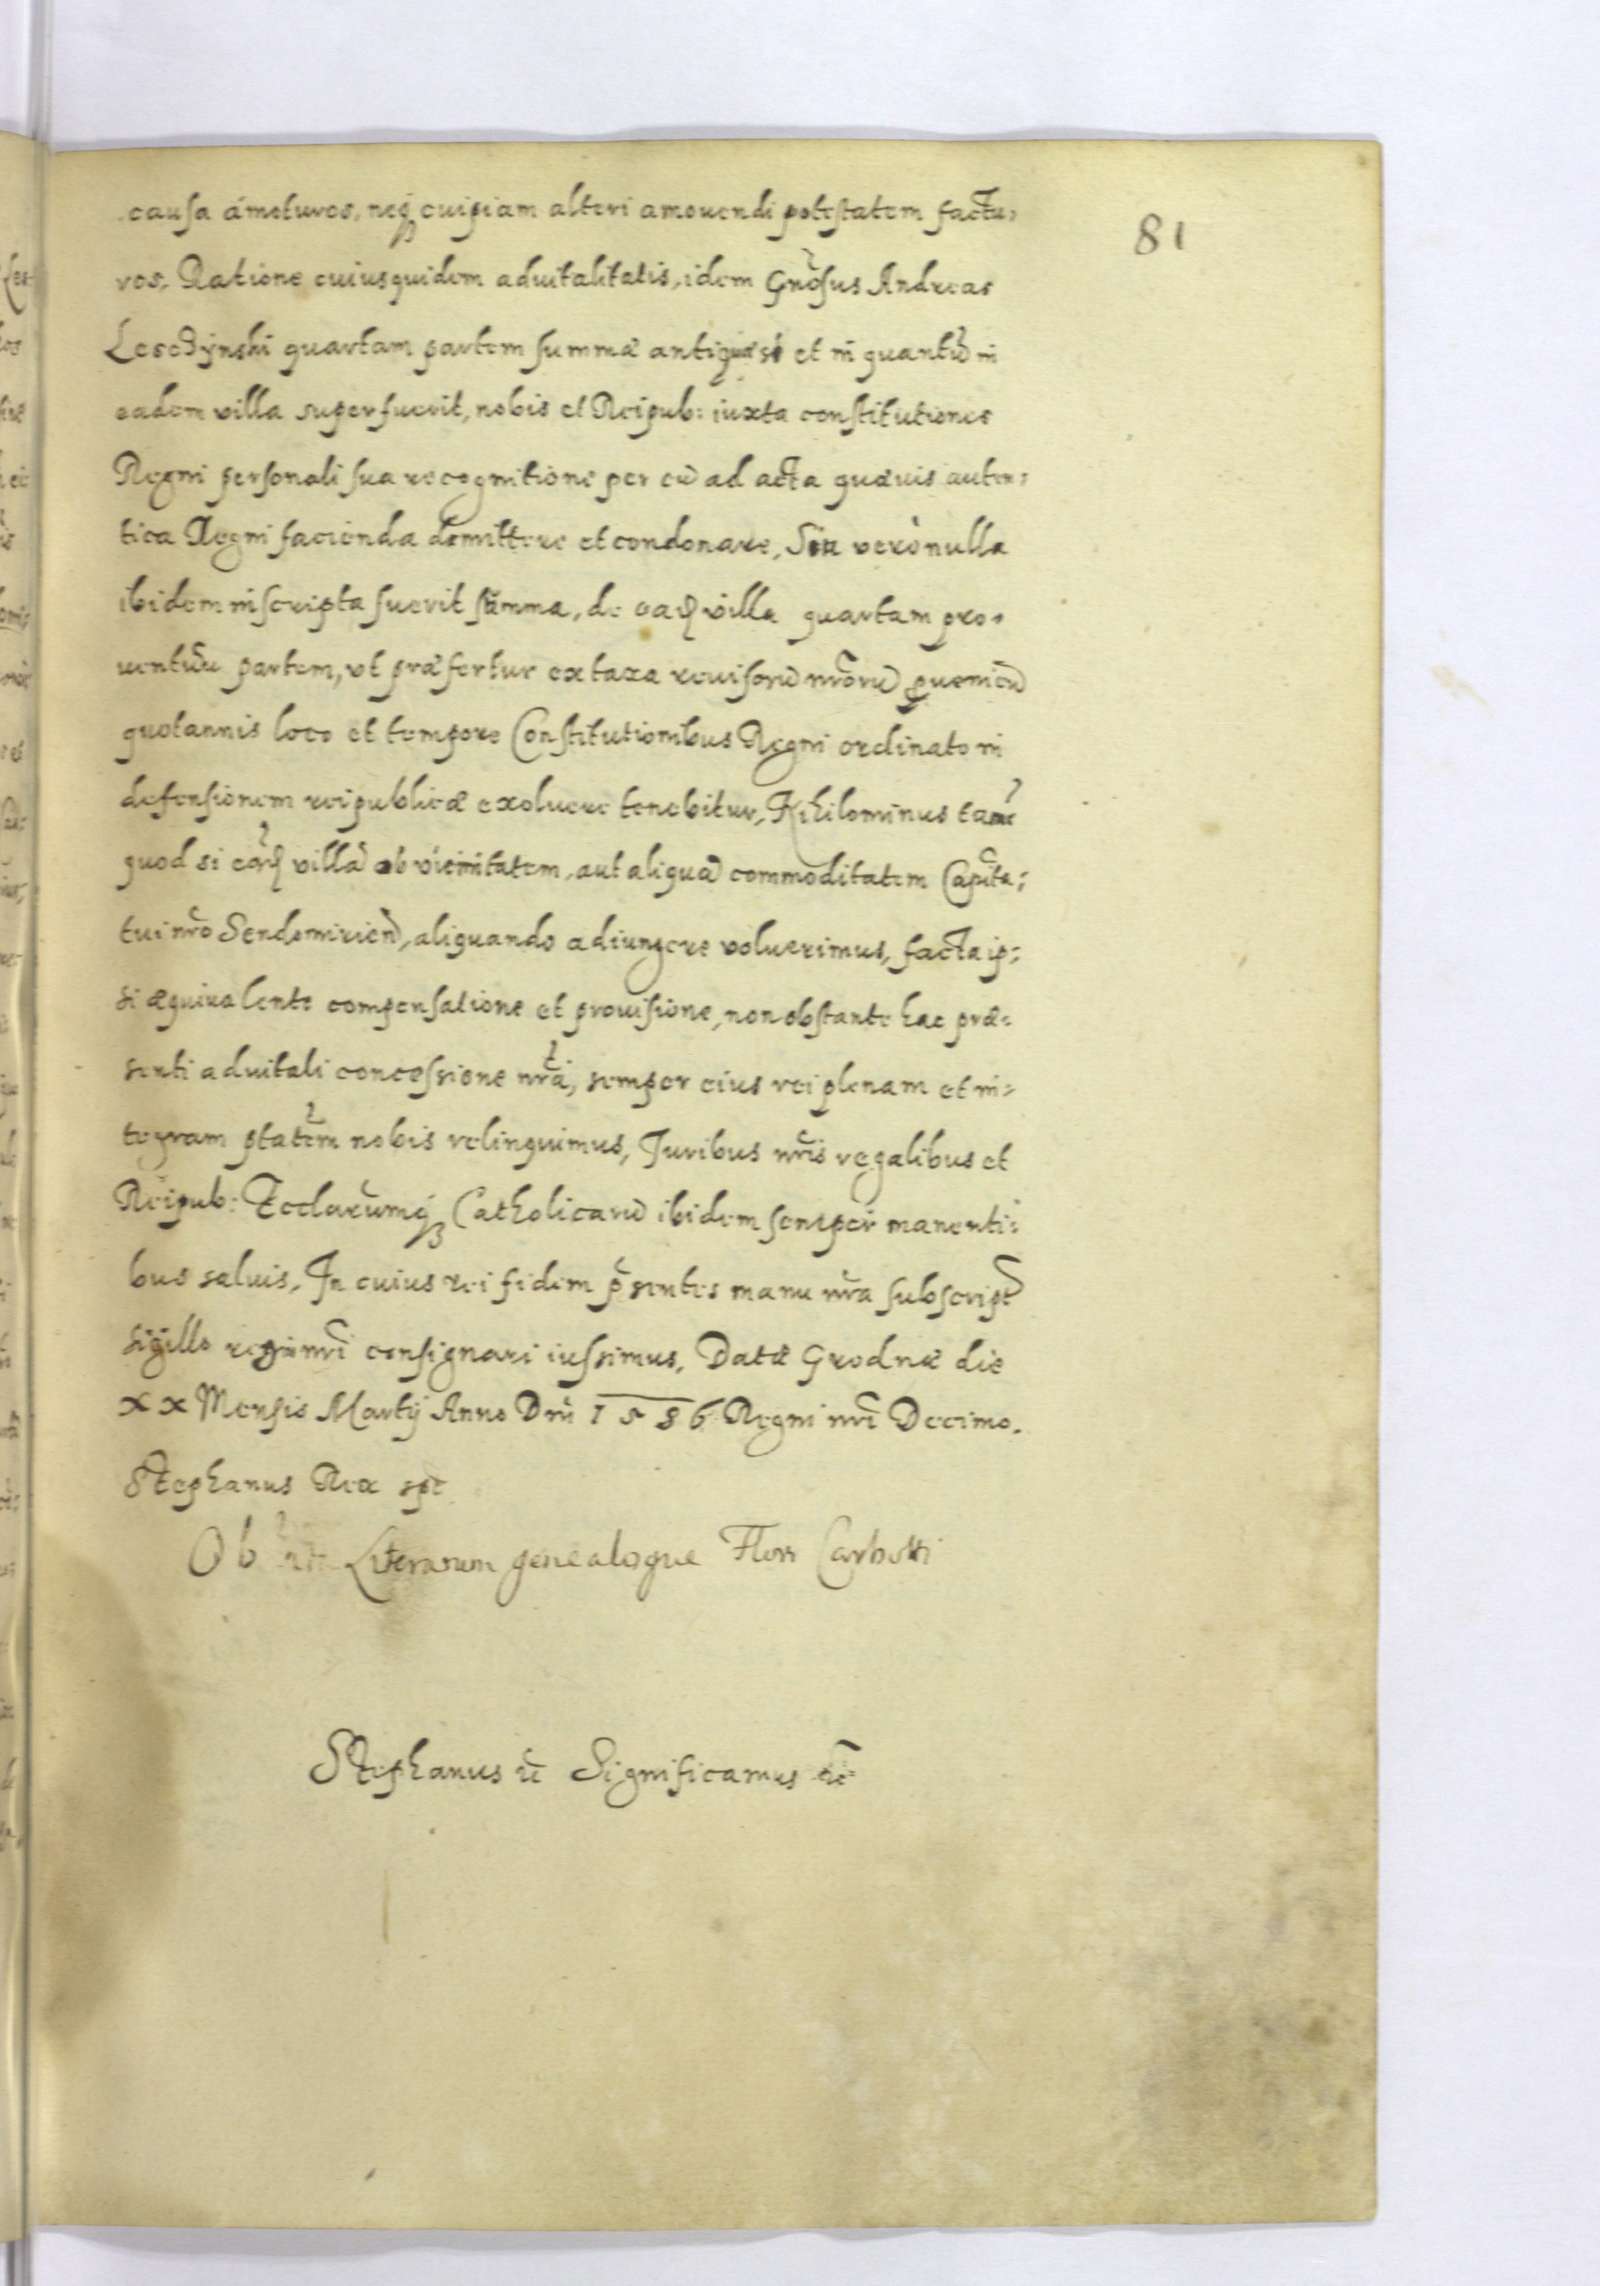 81
causa amoturos, neq; cuipiam alteri amouendi potestatem factu,
ros, Ratione cuiusquidem aduitalitatis, idem Gnõsus Andreas
Lesczÿnski quartam partem summæ antiquæ si et in quantũ in
eadem villa superfuerit, nobis et Reipub: iuxta constitutiones
Regni personali sua recognitione per eũ ad acta quæuis auten:
tica Regni facienda demittere et condonare, Sin verò nulla
ibidem inscripta fuerit summa, de villa quartam pro,
uentuũ partem, vt præfertur ex taxa reuisorũ nr̃orũ ꝓueniẽ
quotannis loco et tempore Constitutionibus Regni ordinato in
defensionem reipublicæ exoluere tenebitur, Nihilominus tamẽ
quod si villã ob vicinitatem, aut aliquã commoditatem Capita:
tui nr̃o Sendomirieñ, aliquando adiungere voluerimus, facta ip:
si æquiualente compensatione et prouisione, non obstante hac præ:
senti aduitali concessione nr̃a, semper eius rei plenam et in:
tegram ptatẽm nobis relinquimus, Juribus nr̃is regalibus et
Reipub: Ecclarũmq; Catholicarũ ibidem semper manenti:
bus saluis, In cuius rei fidem p̃sentes manu nr̃a subscript̃
sigillo regni nr̃i consignari iussimus, Datæ Grodnæ die
xx Mensis Martij Anno Dni 1586 Regni nr̃i Decimo.
Stephanus Rex spt
Literarum genealogue Flori
Stephanus rc̃ Significamus rc̃